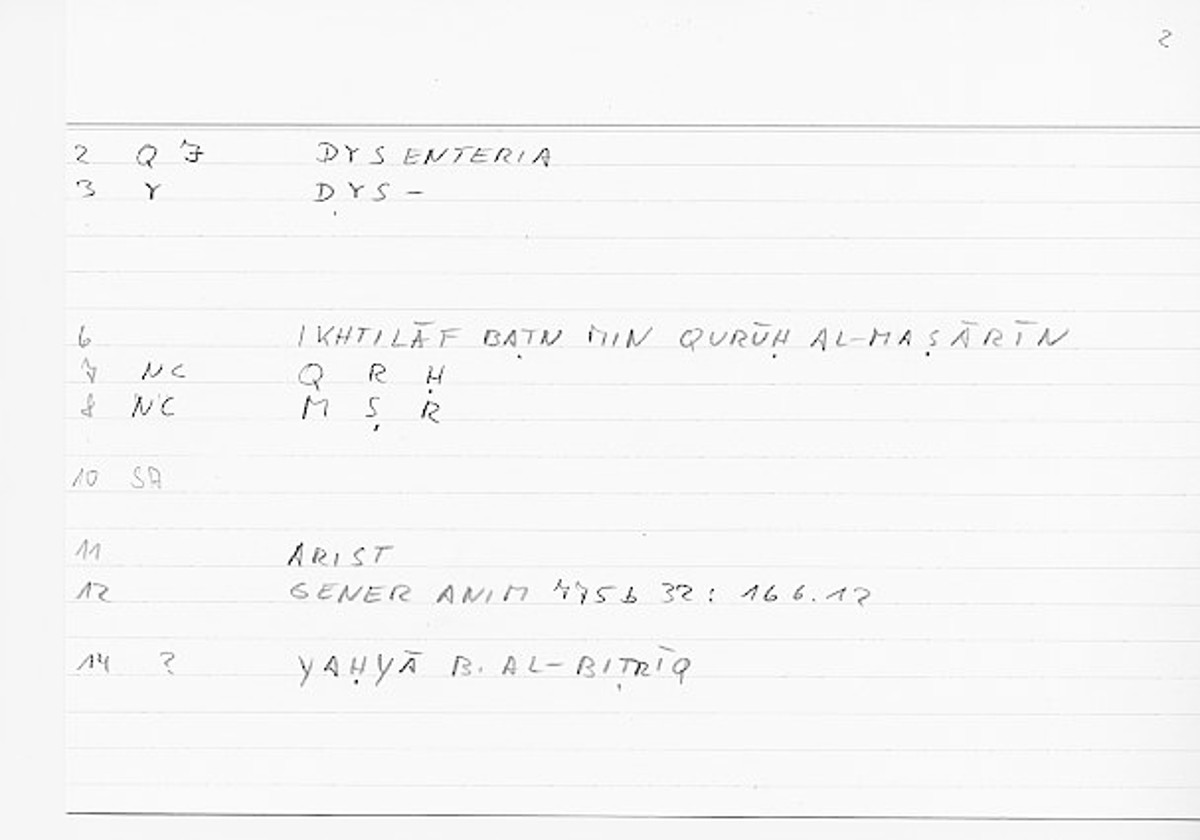 2
2 Q 7 DYSENTERIA
3 Y DYS-
6 IKHTILĀF BAṬN MIN QURŪḤ AL-MAṢĀRĪN
7 NC Q R Ḥ
8 NC M Ṣ R
10 SA
11 ARIST
12 GENER ANIM 775b 32: 166.12
14 ? YAḤYĀ B. AL-BIṬRĪQ